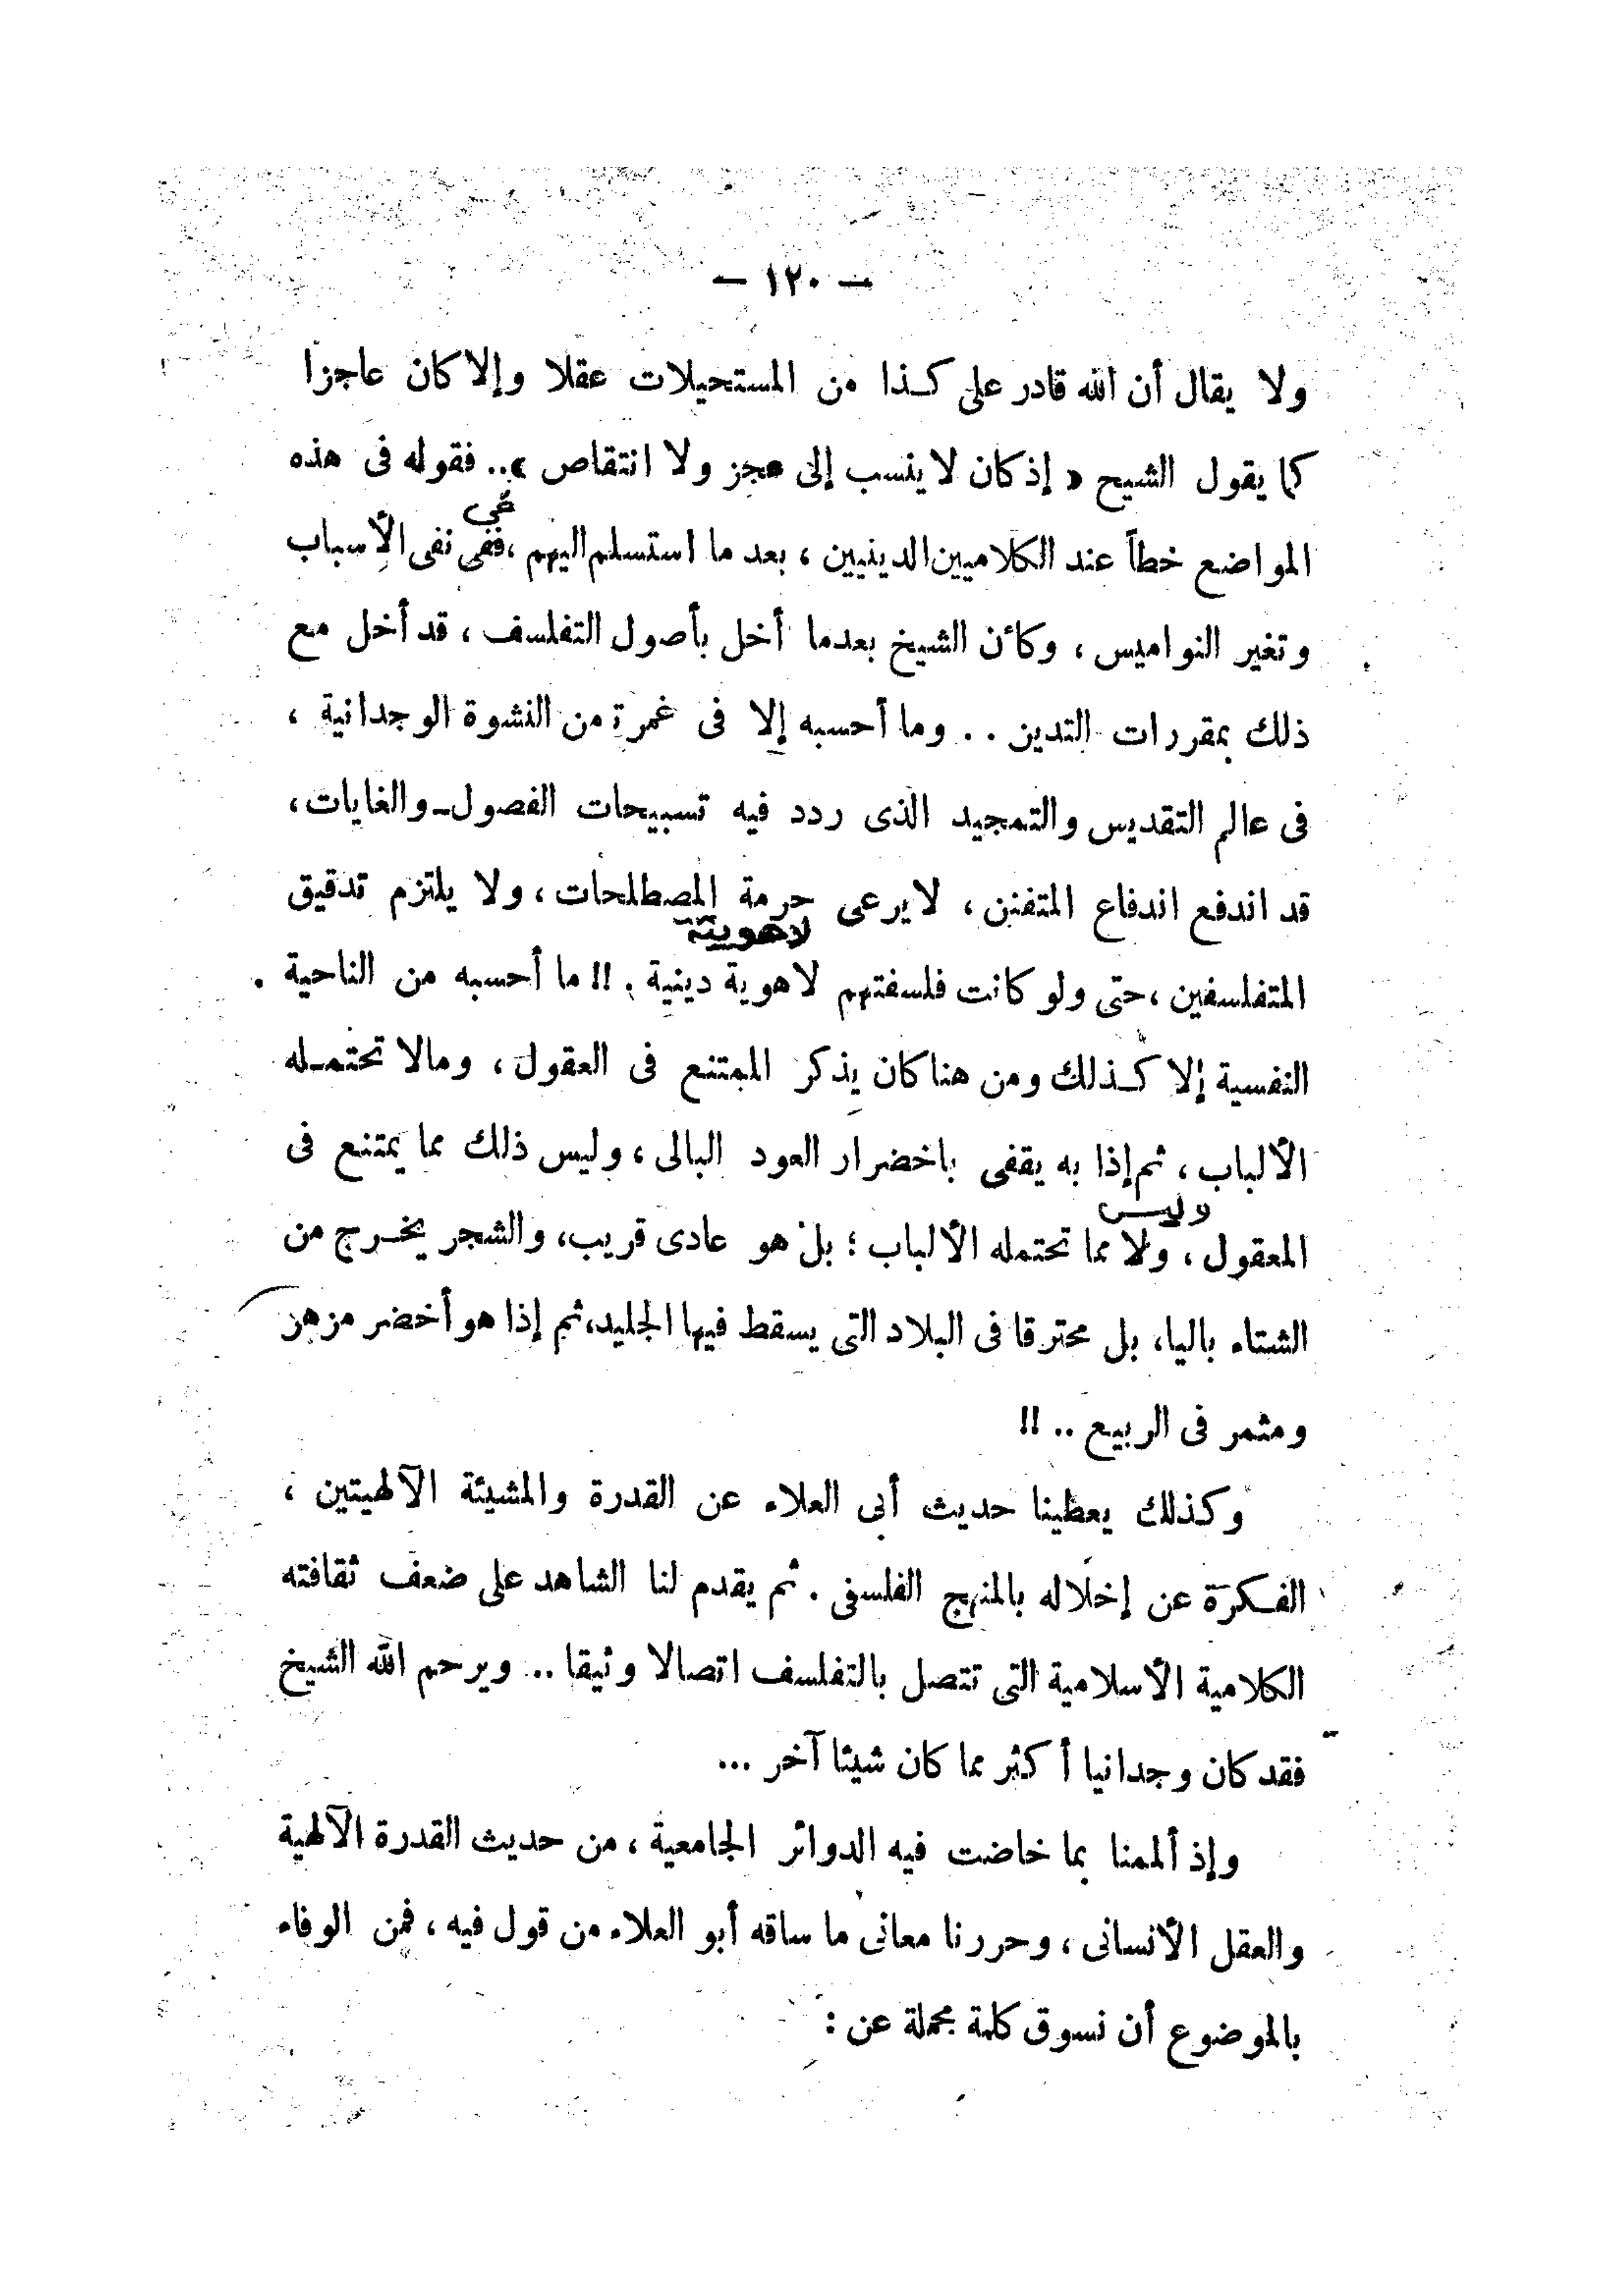 — ١٢٠ —
ولا يقال أن الله قادر على كذا من المستحيلات عقلا وإلا كان عاجزا
كما يقول الشيح « إذ كان لا ينسب إلى عجز ولا انتقاص ».. فقوله فى هذه
فى
المواضع خطأ عند الكلاميين الدينيين ، بعد ما استسلم اليهم ، ففى نفى الأسباب
وتغير النواميس ، وكأن الشيخ بعدما أخل بأصول التفلسف ، قد أخل مع
ذلك بمقررات التدين . . وما أحسبه إلا فى غمرة من النشوة الوجدانية ،
فى عالم التقديس والتمجيد الذى ردد فيه تسبيحات الفصول ـ والغايات ،
قد اندفع اندفاع المتفنن ، لا يرعى حرمة المصطلحات ، ولا يلتزم تدقيق
لاهوتية
المتفلسفين ، حتى ولو كانت فلسفتهم لاهوية دينية . !! ما أحسبه من الناحية .
النفسية إلا كذلك ومن هنا كان يذكر الممتنع فى العقول ، ومالا تحتمله
الألباب ، ثم إذا به يقفى باخضرار العود البالى ، وليس ذلك مما يمتنع فى
وليس
المعقول ، ولا مما تحتمله الألباب ؛ بل هو عادى قريب ، والشجر يخرج من
الشتاء باليا ، بل محترقا فى البلاد التى يسقط فيها الجليد ، ثم إذا هو أخضر مزهر
ومثمر فى الربيع .. !!
وكذلك يعطينا حديث أبى العلاء عن القدرة والمشيئة الآلهيتين ،
الفكرة عن إخلاله بالمنهج الفلسفى . ثم يقدم لنا الشاهد على ضعف ثقافته
الكلامية الأسلامية التى تتصل بالتفلسف اتصالا وثيقا .. ويرحم الله الشيخ
فقد كان وجدانيا أكثر مما كان شيئا آخر ...
وإذ ألممنا بما خاضت فيه الدوائر الجامعية ، من حديث القدرة الآلهية
والعقل الأنسانى ، وحررنا معانى ما ساقه أبو العلاء من قول فيه ، فمن الوفاء
بالموضوع أن نسوق كلمة مجملة عن :